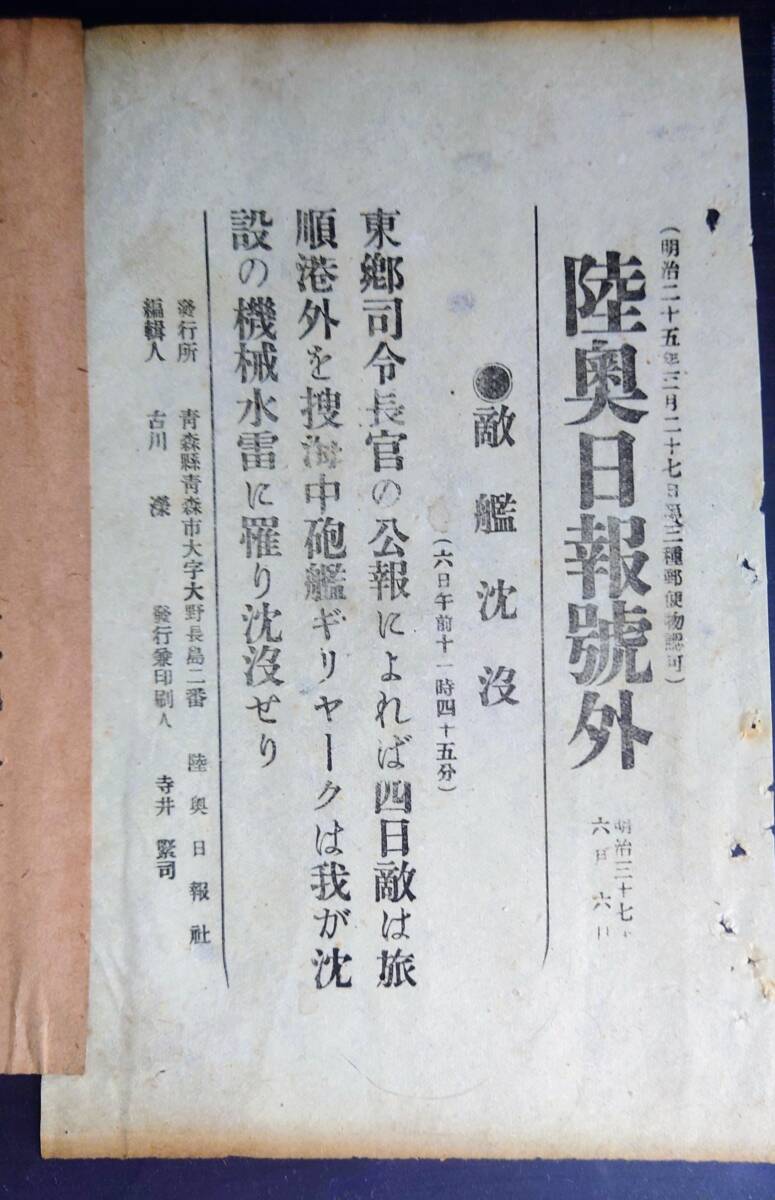 (明治二十五年三月二十七日第三種郵便物認可)
陸奥日報號外
明治三十七年
六月六日
●敵艦沈没
(六日午前十一時四十五分)
東郷司令長官の公報によれば四日敵は旅
順港外を捜海中砲艦ギリヤークは我が沈
設の機械水雷に罹り沈没せり
發行所 青森縣青森市大字大野長島二番 陸奥日報社
編輯人 古川 發行兼印刷人 寺井